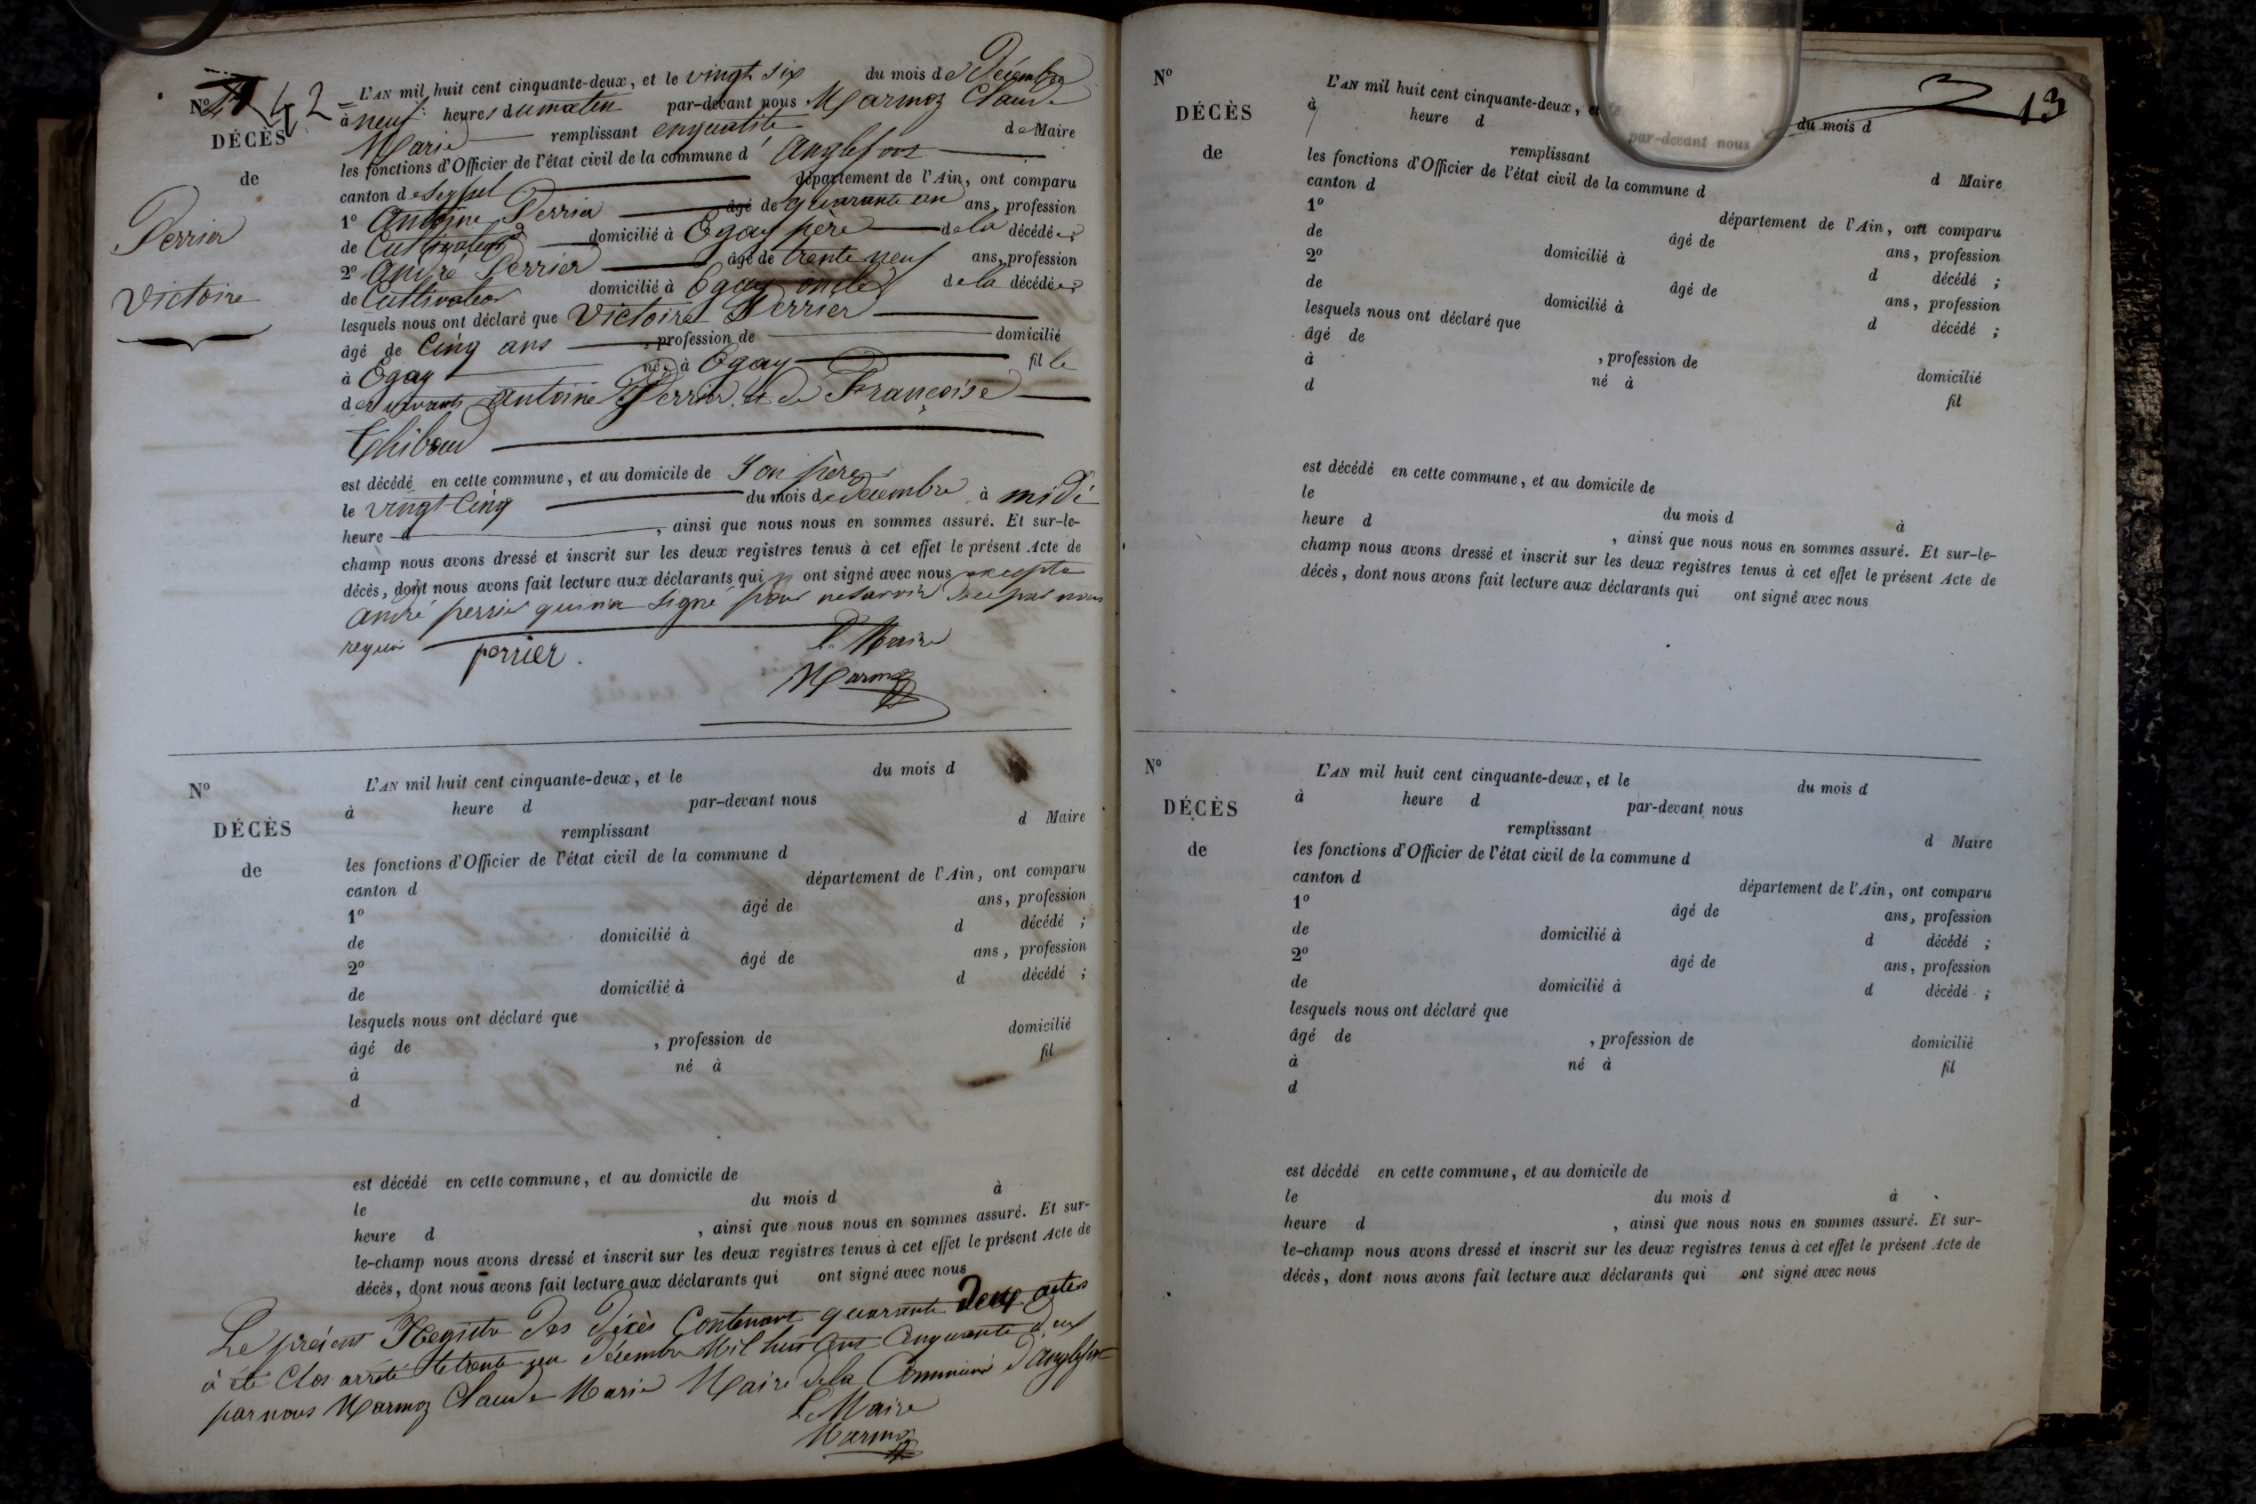 N° 42
DÉCÈS
de
Perrier
Victoire
L'AN mil huit cent cinquante-deux, et le vingt six du mois de Décembre
à neuf heures du matin par-devant nous Marmoz Claude
Marie remplissant en qualité de Maire
les fonctions d'Officier de l'état civil de la commune d'Anglefort
canton de Seyssel département de l'Ain, ont comparu
1° Antoine Perrier âgé de quarante un ans, profession
de Cultivateur domicilié à Ogay père de la décédée;
2° André Perrier âgé de trente neuf ans, profession
de Cultivateur domicilié à Ogay oncle de la décédée;
lesquels nous ont déclaré que Victoire Perrier
âgé de Cinq ans , profession de domicilié
à Ogay née à Ogay fille
des vivants Antoine Perrier et de Françoise
Thiboud
est décédé en cette commune, et au domicile de son père
le vingt-Cinq du mois de décembre à midi
heure d , ainsi que nous nous en sommes assuré. Et sur-le-
champ nous avons dressé et inscrit sur les deux registres tenus à cet effet le présent Acte de
décès, dont nous avons fait lecture aux déclarants qui ont signé avec nous excepté
André perrier qui n'a signé pour ne savoir de ce par nous
requis
perrier.
Le Maire
Marmoz
N°
DÉCÈS
de
L'AN mil huit cent cinquante-deux, et le du mois d
à heure d par-devant nous
remplissant d Maire
les fonctions d'Officier de l'état civil de la commune d
canton d département de l'Ain, ont comparu
1° âgé de ans, profession
de domicilié à d décédé ;
2° âgé de ans, profession
de domicilié à d décédé ;
lesquels nous ont déclaré que
âgé de , profession de domicilié
à né à fil
d
est décédé en cette commune, et au domicile de
le du mois d à
heure d , ainsi que nous nous en sommes assuré. Et sur-
le-champ nous avons dressé et inscrit sur les deux registres tenus à cet effet le présent Acte de
décès, dont nous avons fait lecture aux déclarants qui ont signé avec nous
Le présent Registre des Décès Contenant quarante Deux actes
à été Clos arrêté le trente un Décembre Mil huit Cent Cinquante deux
par nous Marmoz Claude Marie Maire de la Commune d'Anglefort
Le Maire
Marmoz
13
N°
DÉCÈS
de
L'AN mil huit cent cinquante-deux, et le du mois d
à heure d par-devant nous
remplissant d Maire
les fonctions d'Officier de l'état civil de la commune d
canton d département de l'Ain, ont comparu
1° âgé de ans, profession
de domicilié à d décédé ;
2° âgé de ans, profession
de domicilié à d décédé ;
lesquels nous ont déclaré que
âgé de , profession de domicilié
à né à fil
d
est décédé en cette commune, et au domicile de
le du mois d à
heure d , ainsi que nous nous en sommes assuré. Et sur-le-
champ nous avons dressé et inscrit sur les deux registres tenus à cet effet le présent Acte de
décès, dont nous avons fait lecture aux déclarants qui ont signé avec nous
N°
DÉCÈS
de
L'AN mil huit cent cinquante-deux, et le du mois d
à heure d par-devant nous
remplissant d Maire
les fonctions d'Officier de l'état civil de la commune d
canton d département de l'Ain, ont comparu
1° âgé de ans, profession
de domicilié à d décédé ;
2° âgé de ans, profession
de domicilié à d décédé ;
lesquels nous ont déclaré que
âgé de , profession de domicilié
à né à fil
d
est décédé en cette commune, et au domicile de
le du mois d à
heure d , ainsi que nous nous en sommes assuré. Et sur-
le-champ nous avons dressé et inscrit sur les deux registres tenus à cet effet le présent Acte de
décès, dont nous avons fait lecture aux déclarants qui ont signé avec nous